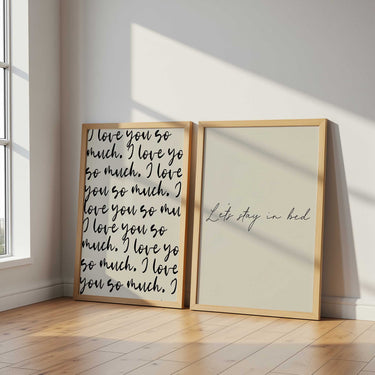 I love you so
much. I love yo
so much. I love
you so much. I
love you so mu
I love you so
much. I love yo
so much. I love
you so much. I
Lets stay in bed